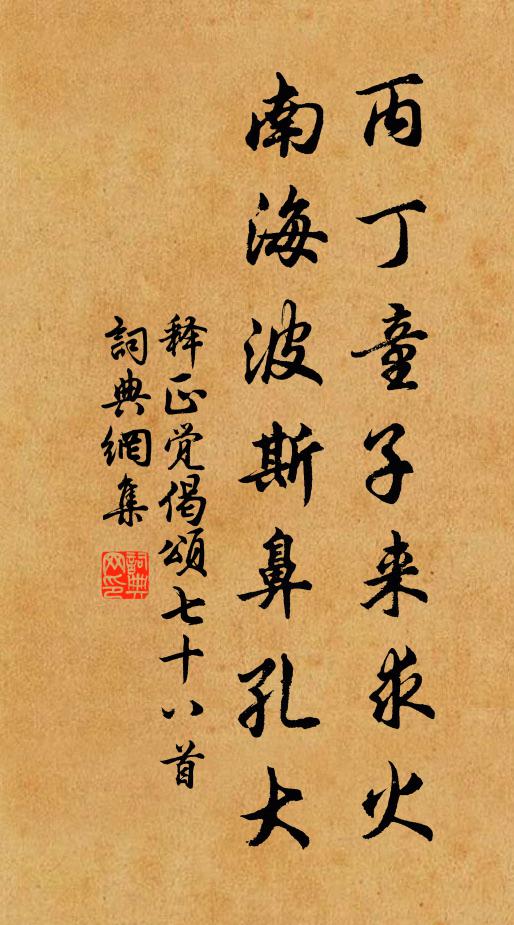 丙丁童子来求火
南海波斯鼻孔大
释正觉偈颂七十八首
詞典網集
詞典網印